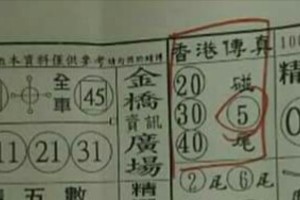 本資料僅供參考
香港傳真
全車
45
金橋
資訊
廣場
精
20
30
40
碰
5
尾
精
11 21 31
2尾6尾
五數